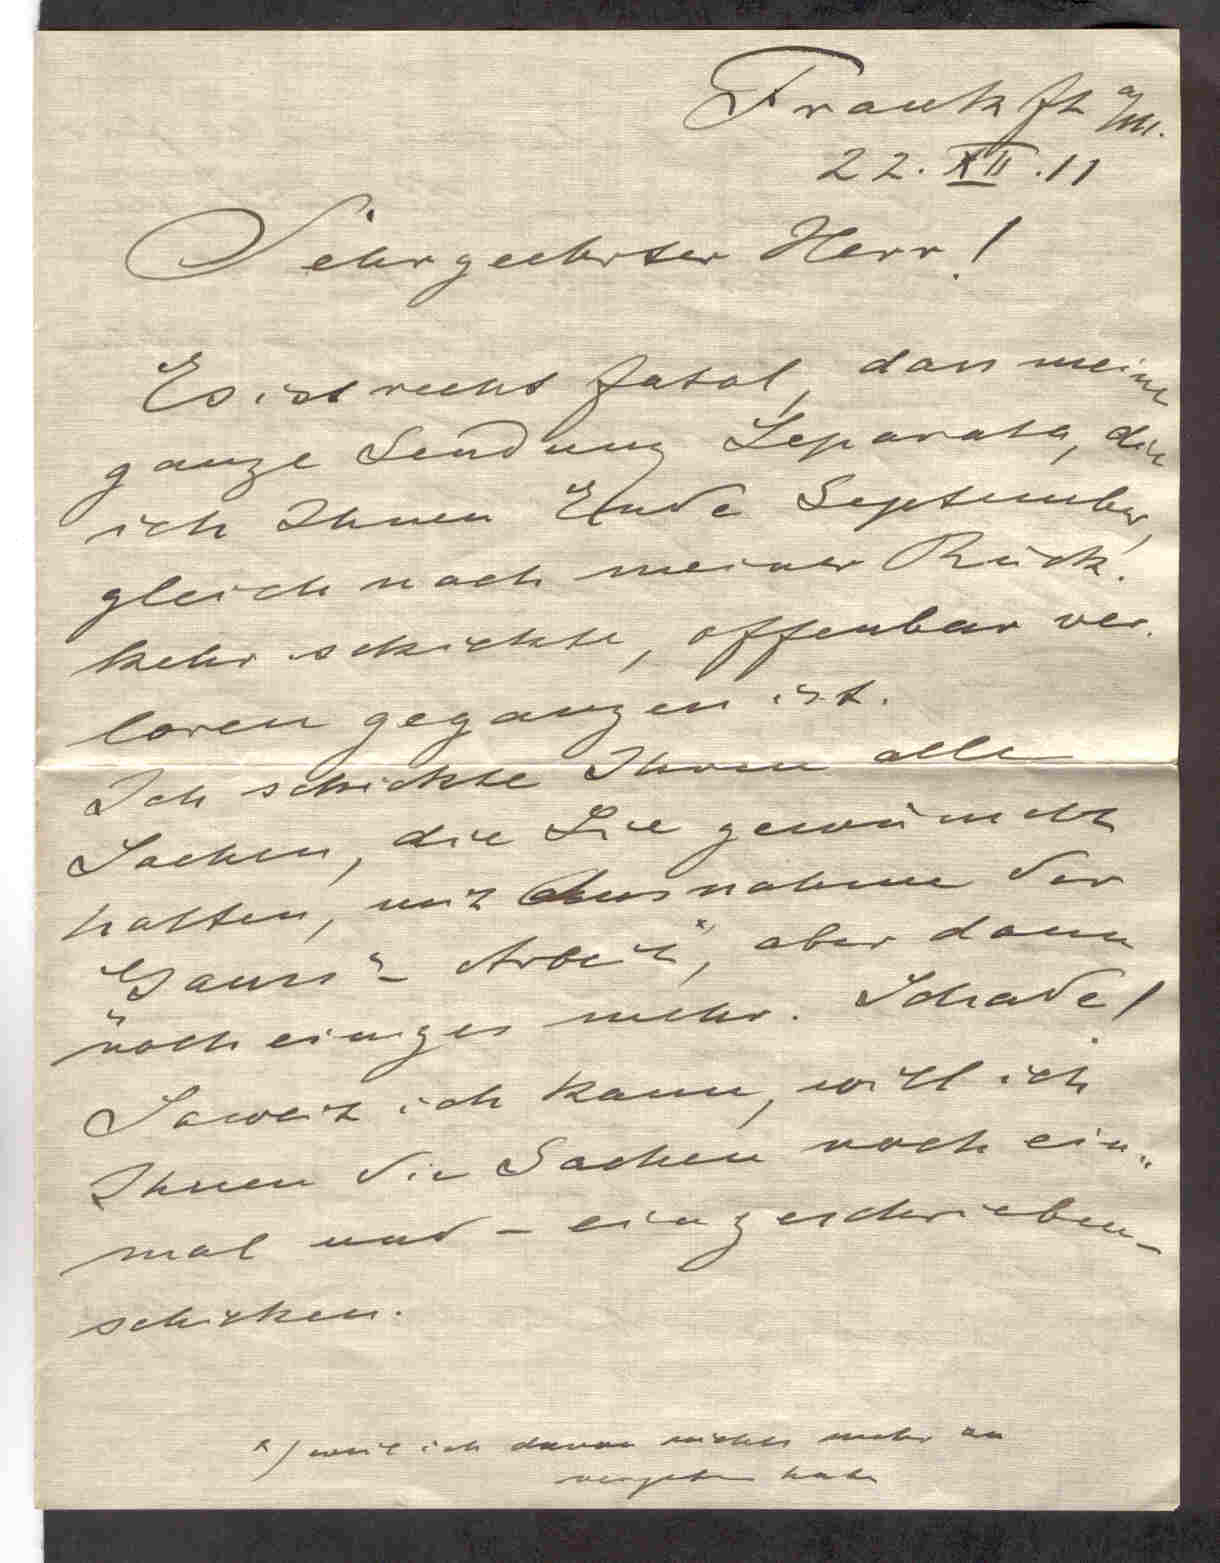 Frankft a/M.
22. XII. 11
Sehrgeehrter Herr!
Es ist recht fatal, dass meine
ganze Sendung Separata, die
ich Ihnen Ende September,
gleich nach meiner Rück-
kehr schickte, offenbar ver-
loren gegangen ist.
Ich schickte Ihnen alle
Sachen, die Sie gewünscht
hatten, mit Ausnahme der
"Gauss"- Arbeit *), aber dann
noch einiges mehr. Schade!
Soweit ich kann, will ich
Ihnen die Sachen noch ein-
mal und - eingeschrieben -
schicken.
*) weil ich davon nichts mehr zu
vergeben habe